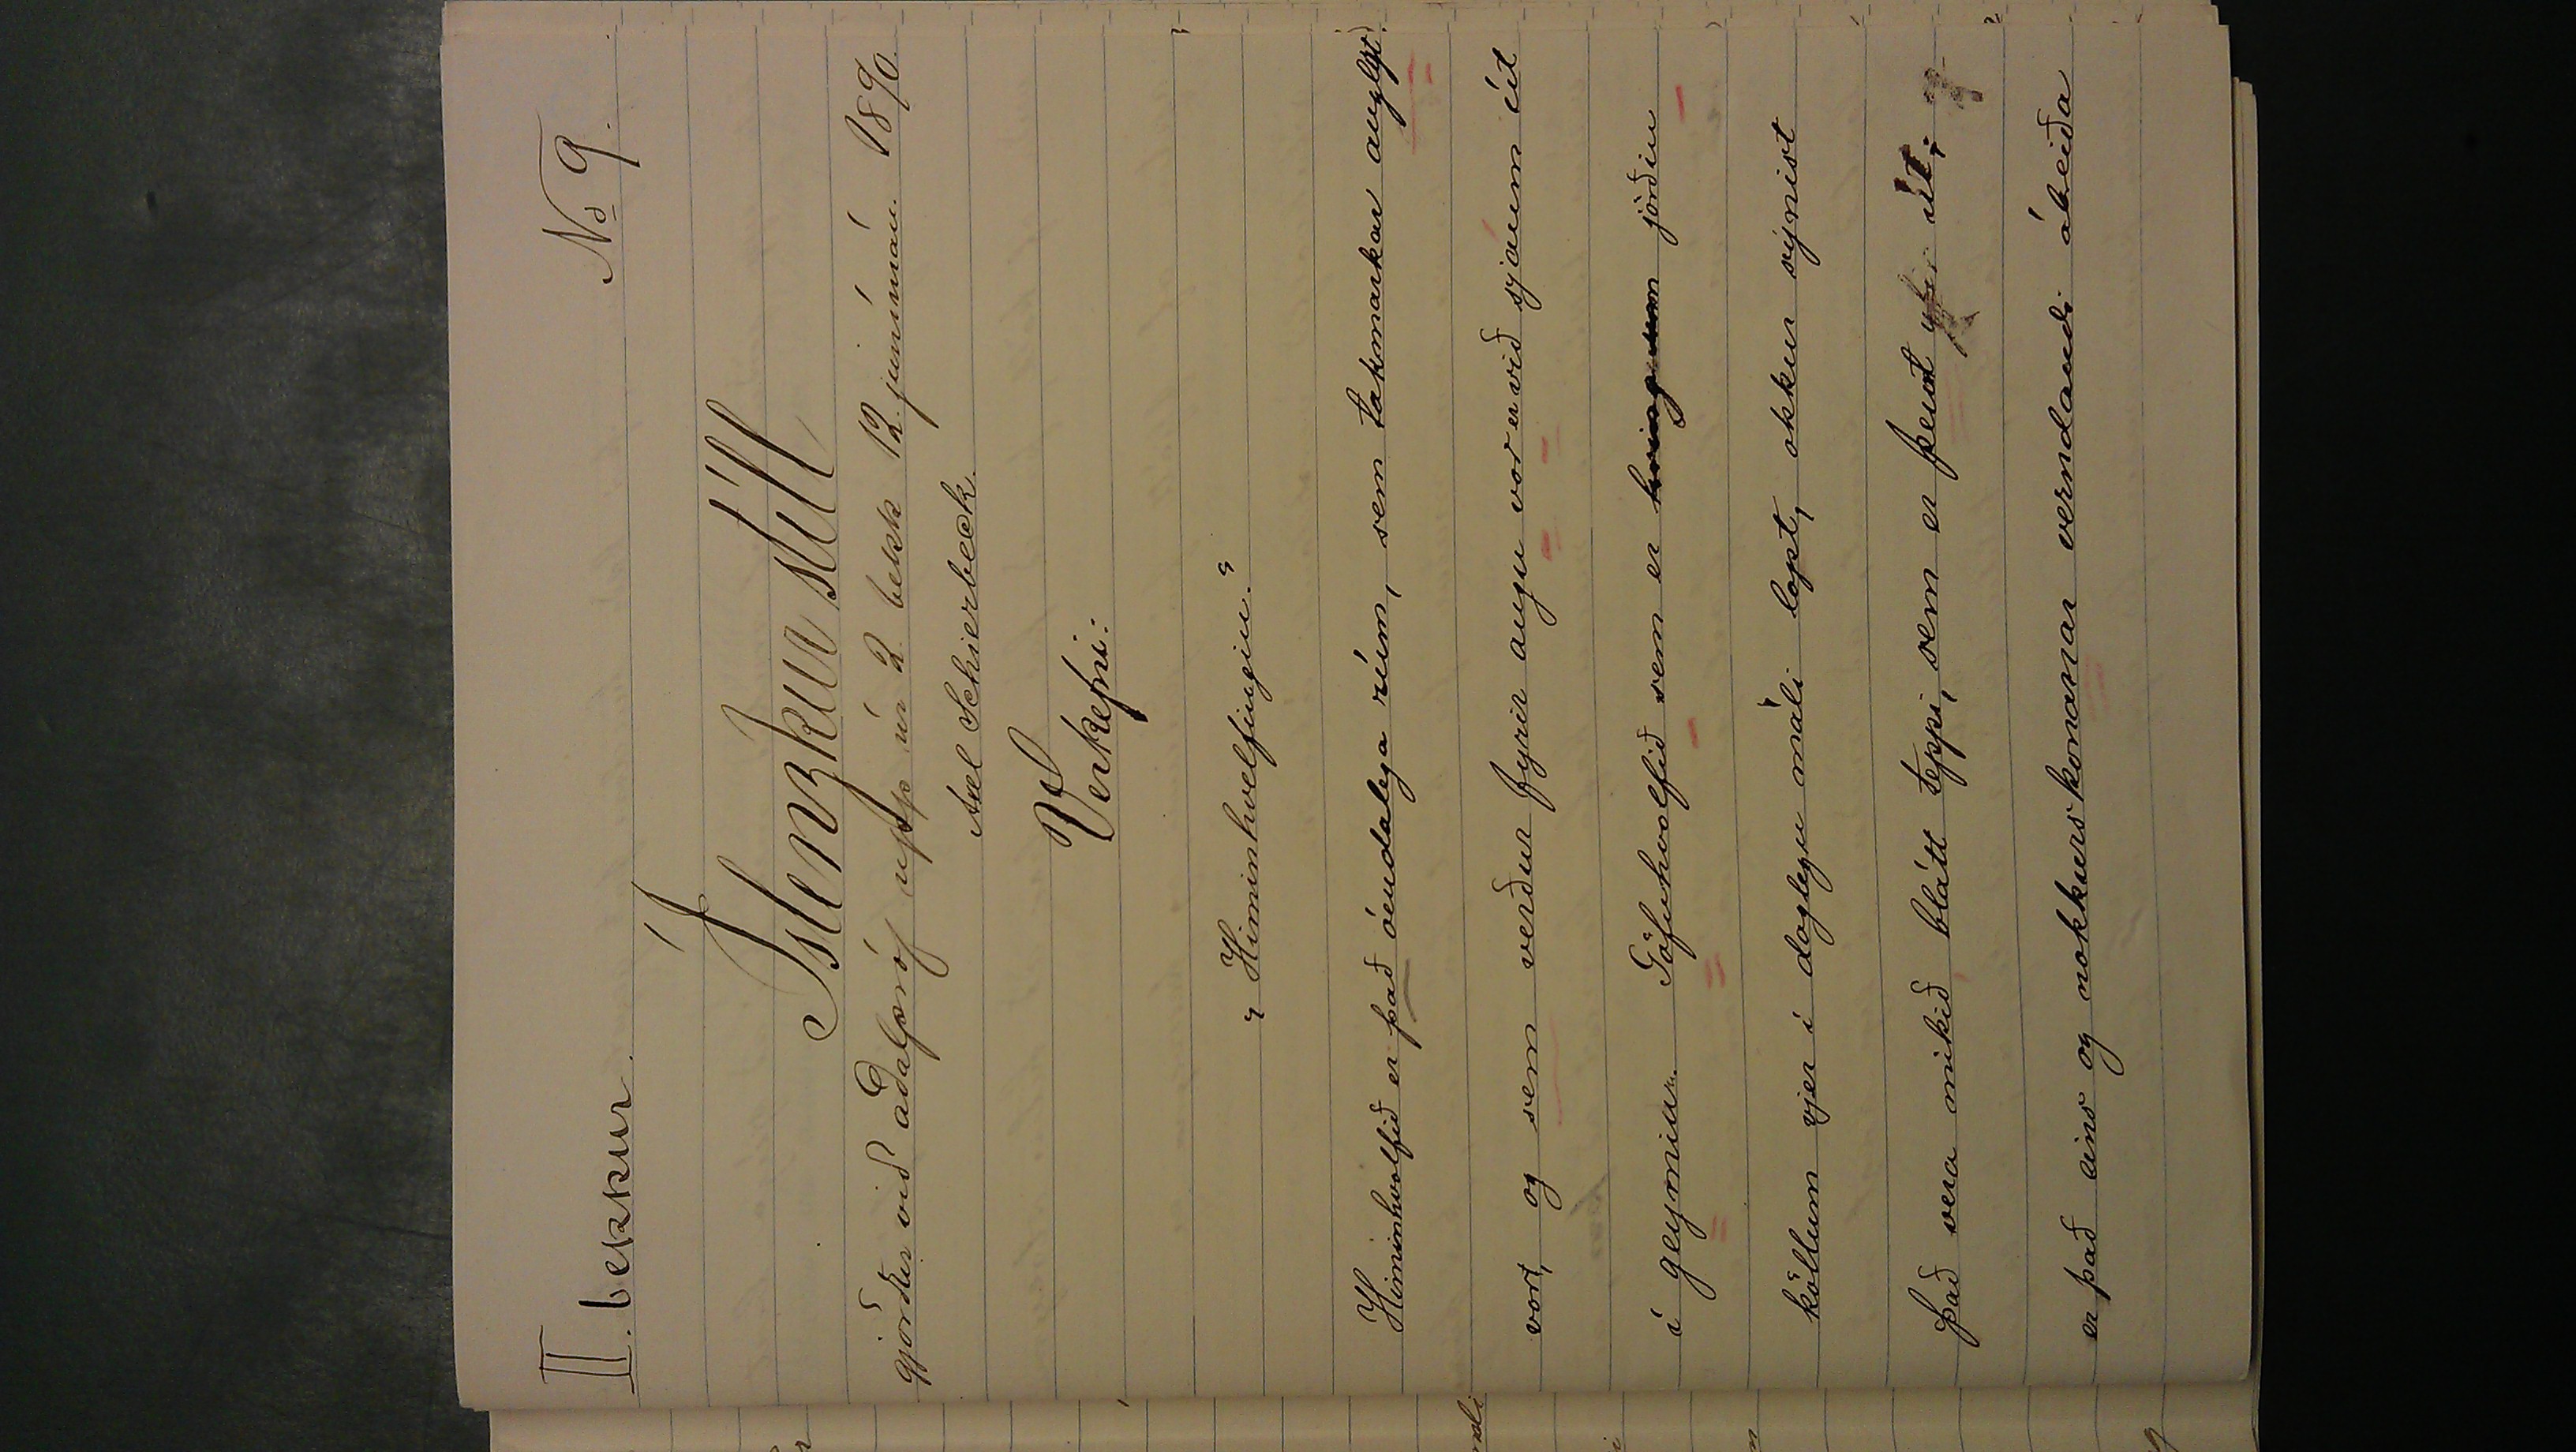 II. bekkur. No 9.
Íslenzkur stíll
gjörður við aðalpróf upp úr 2. bekk 12. júnímán. 1890.
Axel Schierbeck.
Verkefni:
„Himinhvelfingin."
Himinhvolfið er það óendalega rúm, sem takmarkar auglýst
vort, og sem verður fyrir augu vor er við sjáum út
í geyminn. Gufuhvolfið sem er kringum jörðin
köllum vjer í daglegu máli lopt, okkur sýnist
það vera mikið blátt teppi, sem er þeint yfir allt;
er það eins og nokkurskonar verndandi ábeiða